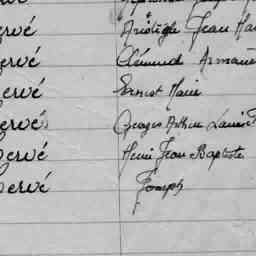 ervé Aristide Jean Ma
ervé Clément Armand
ervé Ernest Marie
ervé Georges Arthur Louis
ervé Henri Jean Baptiste
ervé Joseph